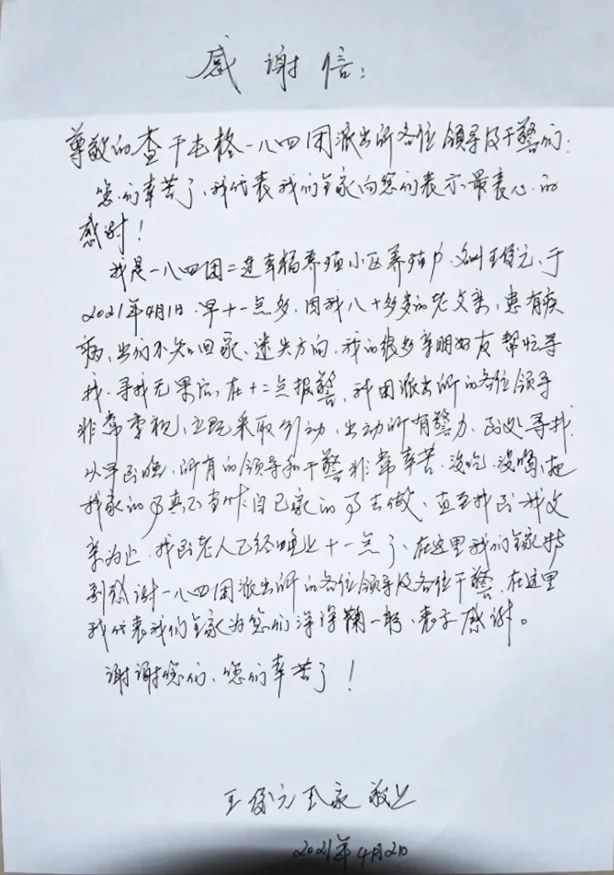 感谢信：
尊敬的查干屯格一八四团派出所各位领导及干警们：
您们辛苦了，我代表我们全家向您们表示最衷心的
感谢！
我是一八四团二连幸福养殖小区养殖户，名叫王俊元，于
2021年4月1日早十一点多，因我八十多岁的老父亲，患有疾
病，出们不知回家，迷失方向，我的很多亲朋好友帮忙寻
找，寻找无果后，在十二点报警，我团派出所的各位领导
非常重视，立既采取行动，出动所有警力，到处寻找，
从早到晚，所有的领导和干警非常辛苦，没吃、没喝，把
我家的事真正当作自己家的事去做，直至找到我父
亲为止，找到老人已经晚上十一点了，在这里我们全家特
别感谢一八四团派出所的各位领导及各位干警，在这里
我代表我们全家为您们深深鞠一躬、表示感谢。
谢谢您们，您们辛苦了！
王俊元全家敬上
2021年4月2日